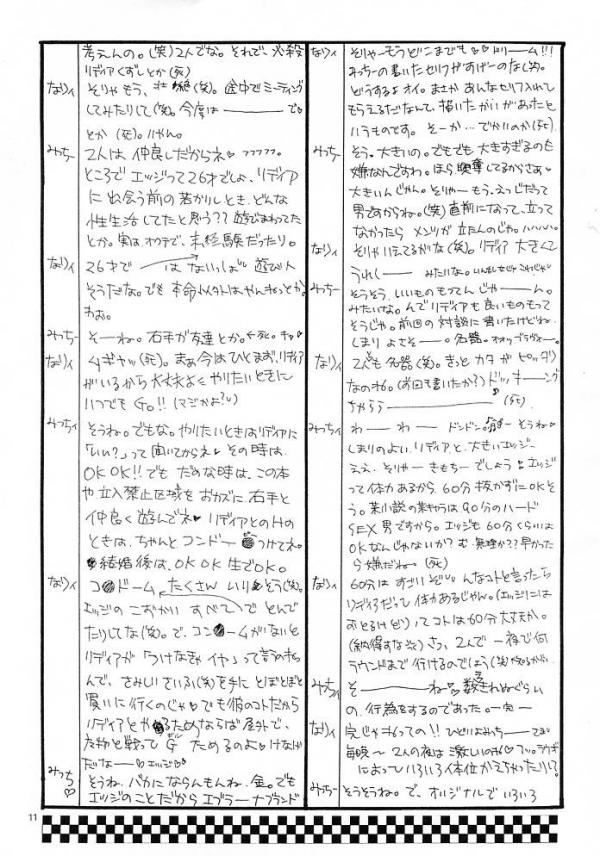 考えんの。(笑)2人でな。それで、必殺
リディアくずしとか(死)
なりィ そりゃもう、壮絶(笑)。途中でミーティング
してみたりして(笑)。今度は ── で
とか(死)。
みっちー 2人は仲良しだからネ♡ フフフフフ。
ところでエッジって26才でしょ、リディア
に出会う前の若かりしとき、どんな
性生活してたと思う??遊びまわってた
とか。実は、オクテで、未経験だったり。
なりィ 26才で ── はないっしょ 遊び人
そうだな。でも本命以外はやんねっとか。
わお。
みっちー そーね。右手が友達とか。←死。
なりィ ムギャッ(死)。まぁ今はひとまず、リディア
がいるから大丈夫よく やりたいときに
いつでもGo!!(マジかよ?)
みっちィ そうね。でもな。やりたいときはリディアに
「いい?」って聞いてからネ♡ その時は
OK OK!!でも だめな時は、この本
や立入禁止区域をおカズに、右手と
仲良く遊んでネ♡ リディアとのHの
ときは、ちゃんとコンドー●つけてネ。
結婚後は、OK OK 生でOK。
なりィ コ●ドーム たくさん いりそう(笑)。
エッジのこおかい すべて とんで
たりしてな(笑)。で、コン●ームがないと
リディアが「つけなきゃイヤ」って言うのも
んで、さみしいさいふ(笑)を手に とぼとぼと
買いに行くのじゃ♡でも彼のコトだから
リディアとや●るためならば屋外で、
怪物と戦って G ためるのよ♡けなげ
だな──♡エッジ♡
みっち♡ そうね、バカにならんもんね、金。でも
エッジのことだからエブラーナブランド
なりィ そりゃーもうどこまでも♡ドリーム!!!
みっちーの書いたセリフがすげーのなし(笑)。
どうするよオイ。まさかあんなセリフ入れて
もらえるだなんて、描いたかいがあったと
いうものです。そーか…でかいのか(死)
みっちー そう。大きいの。でもでも大きすぎるのも
嫌なんですわ。ほら興奮してるからさぁ
大きいんじゃん。そりゃーもう、えっじだって
男ですからね。(笑)直前になって、立って
なかったら メンツが立たんのじゃ。ハハハハ。
なりィ そりゃいえてるがな(笑)。リディア 大きくて
うれしー ── みたいな。
みっちー そうそう、いいものもってんじゃーん。
みたいな。んでリディアも良いものもって
そうじゃ。前回の対談に書いたけどね
しまりよさそー。名器。
なりィ 2人とも名器(笑)。きっとカタがピッタシ
なのね。(お回も書いたか?)ドッキーング
ちゃららーーー (死)
みっちィ わーーわー ドンドン。 そうね
しまりのよいリディアと、大きいエッジー
ええ、そりゃー きもちーでしょう♡ エッジ
って体力あるから、60分抜かずにOKそ
う。某小説の某キャラは90分のハード
SEX男ですから。エッジも60分くらいは
OKなんじゃないか?む、無理か??早かった
ら嫌だねー。(死)
なりィ 60分はすごいぞい。んなコトと言ったら
リディアだって体力あるじゃん。(エッジには
おとるけど)ってコトは60分大丈夫か。
(納得するな笑)さっ、2人で一夜で何
ラウンドまで行けるのでしょう
みっちィ そ────ね♡
の、行為をするのであった。─完─
なりィ 完じゃねっての!!ひどいよみっちーてば
毎晩〜 2人の夜は激しいのね♡フッ。ラウンド
によっていろいろ体位かえちゃったり!?
みっちー そうそうね。で、オリジナルでいろいろ
11